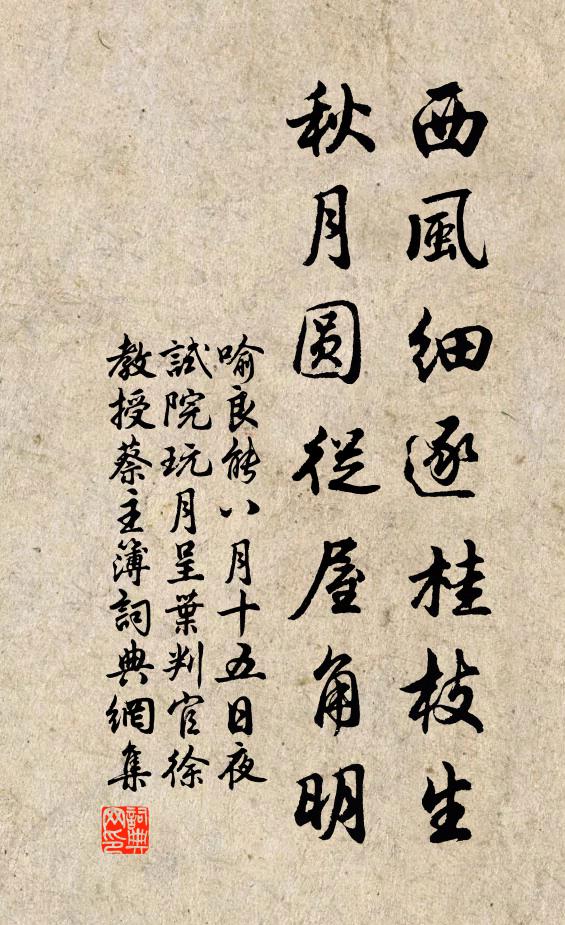 西風細逐桂枝生
秋月圓從屋角明
喻良能八月十五日夜
試院玩月呈葉判官徐
教授蔡主簿詞典網集
詞典网印